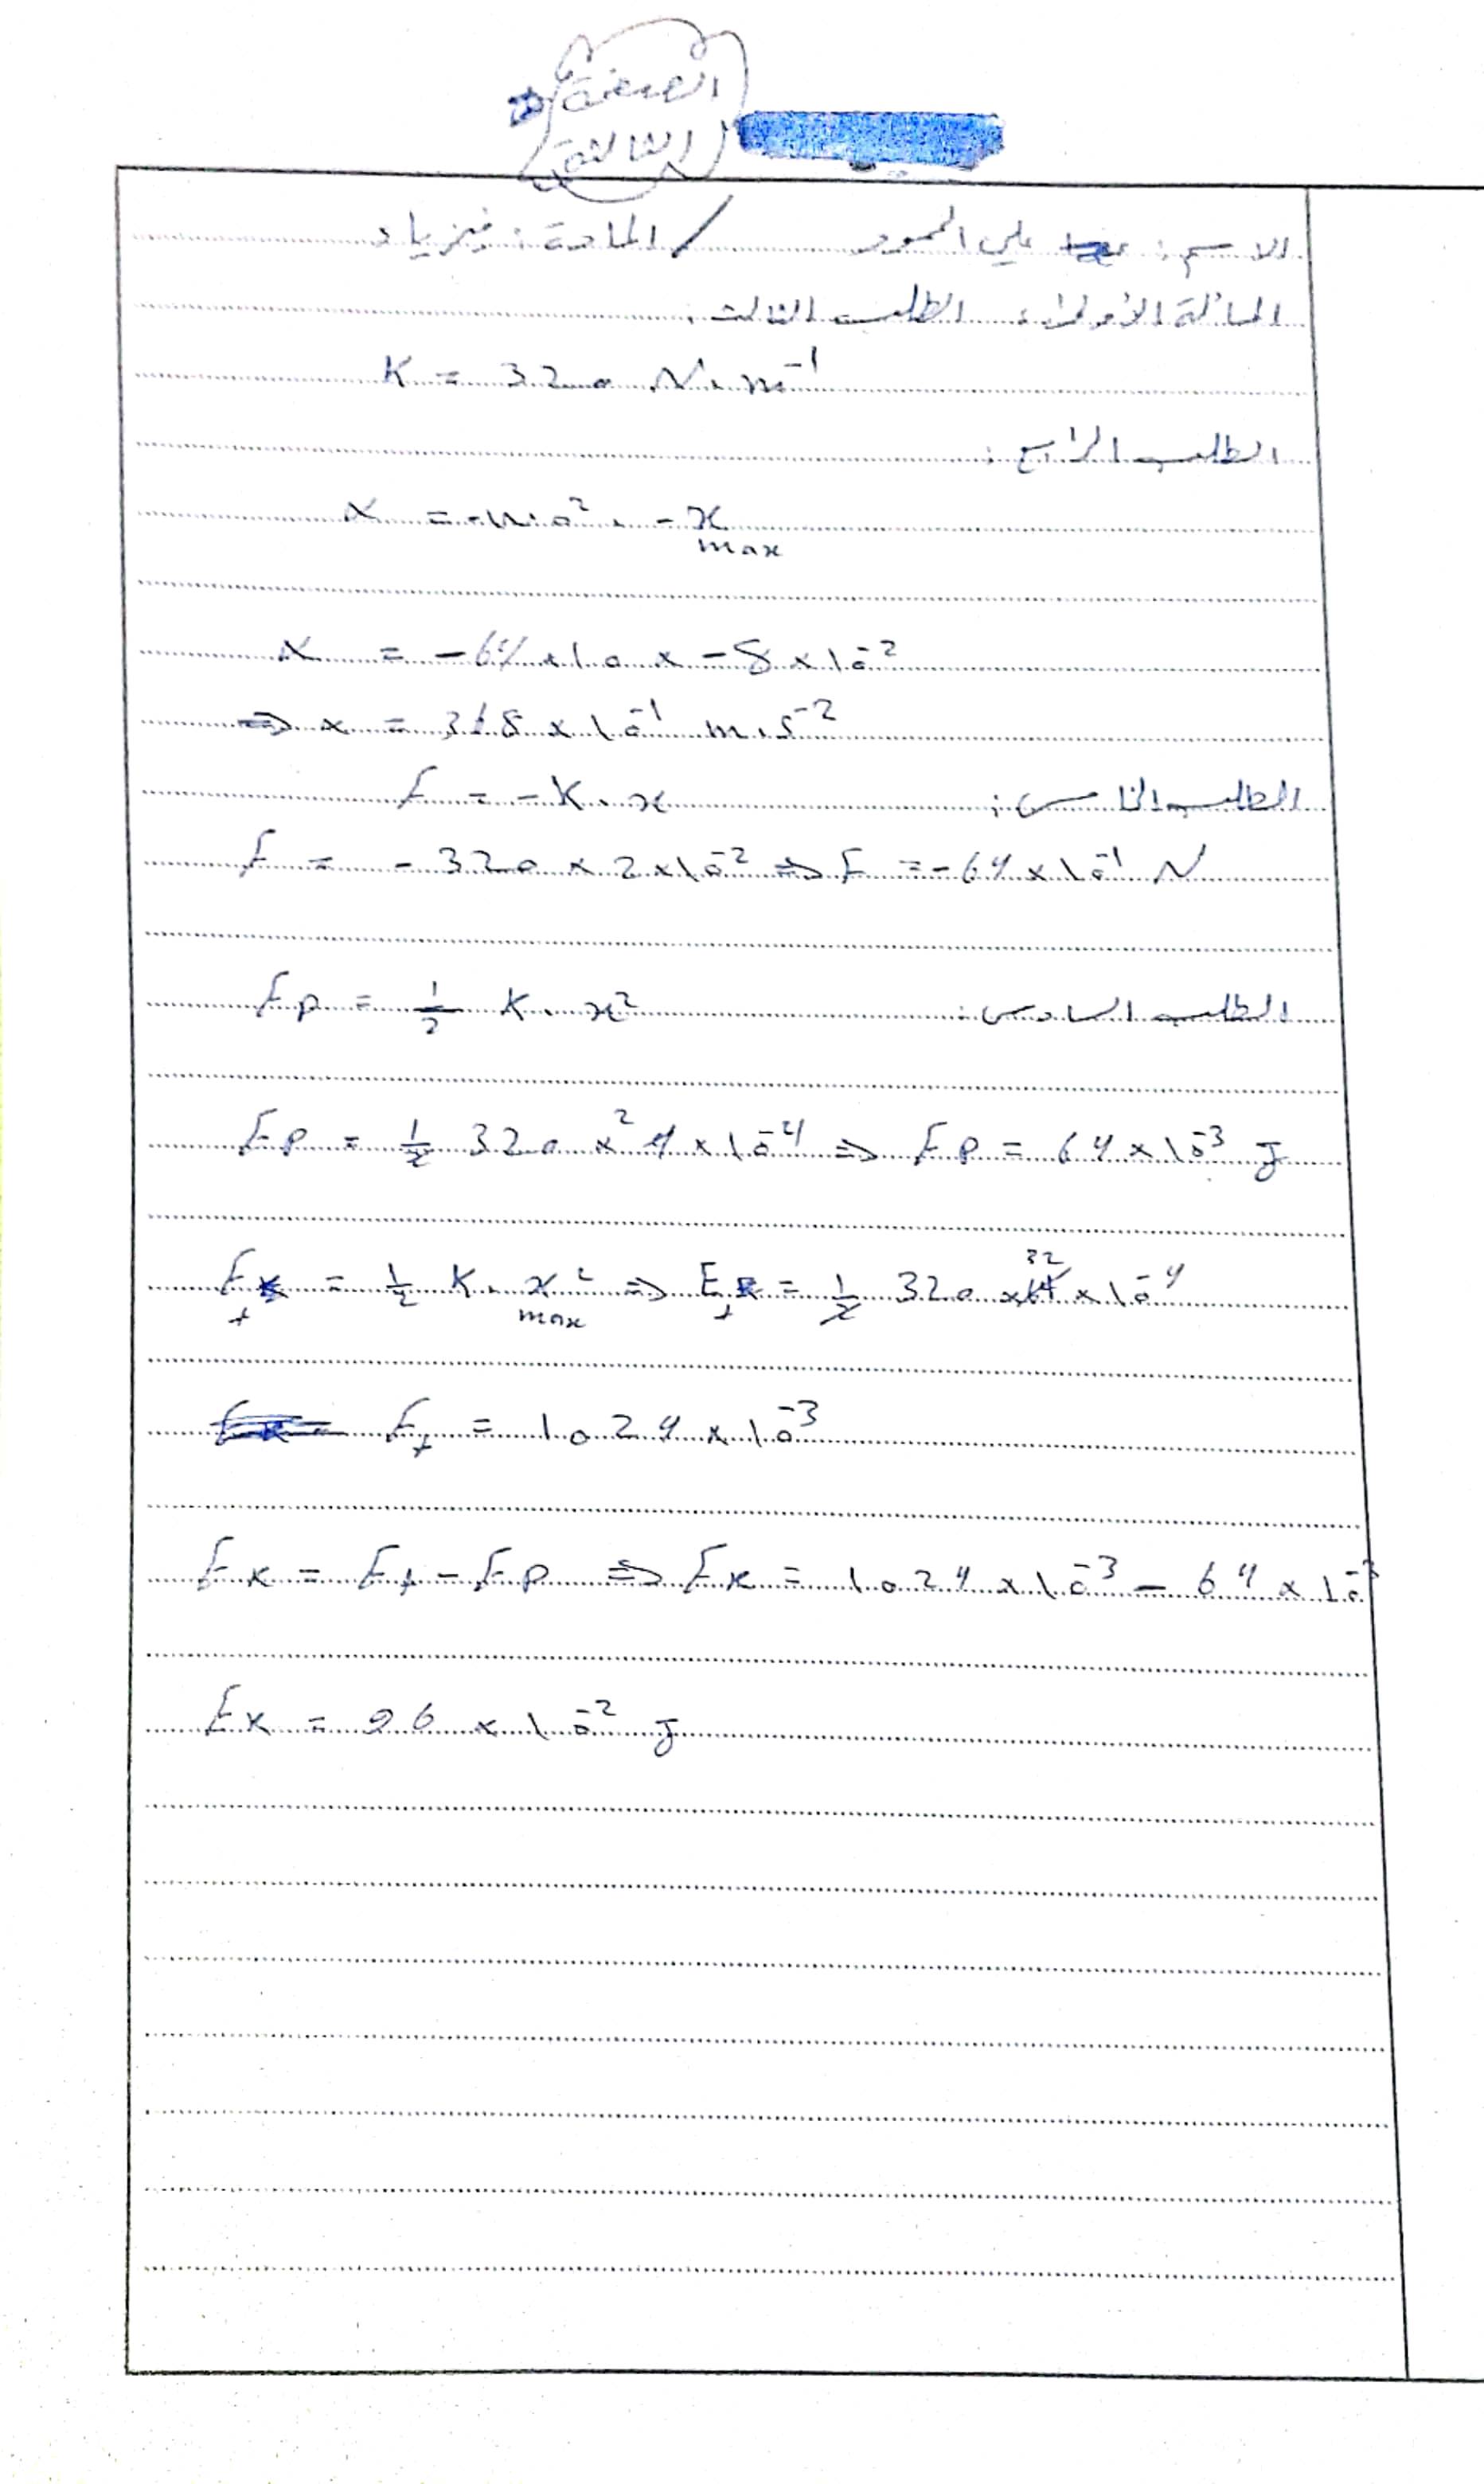 الصفحة
الثالثة
الاسم: علي المحمود / المادة: فيزياء
المسألة الأولى: الطلب الثالث:
K = 320 N.m⁻¹
الطلب الرابع:
= -ω₀². -x max
= -64 × 10 × -8 × 10⁻²
⇒ = 368 × 10⁻¹ m.s⁻²
الطلب الخامس: F = -K.x
F = -320 × 2 × 10⁻² ⇒ F = -64 × 10⁻¹ N
الطلب السادس: Ep = 1/2 K.x²
Ep = 1/2 320 × 4 × 10⁻⁴ ⇒ Ep = 64 × 10⁻³ J
E = 1/2 K.x² max ⇒ E = 1/2 320 × 64 32 × 10⁻⁴
E = 1024 × 10⁻³
Ek = Et - Ep ⇒ Ek = 1024 × 10⁻³ - 64 × 10⁻³
Ek = 96 × 10⁻² J